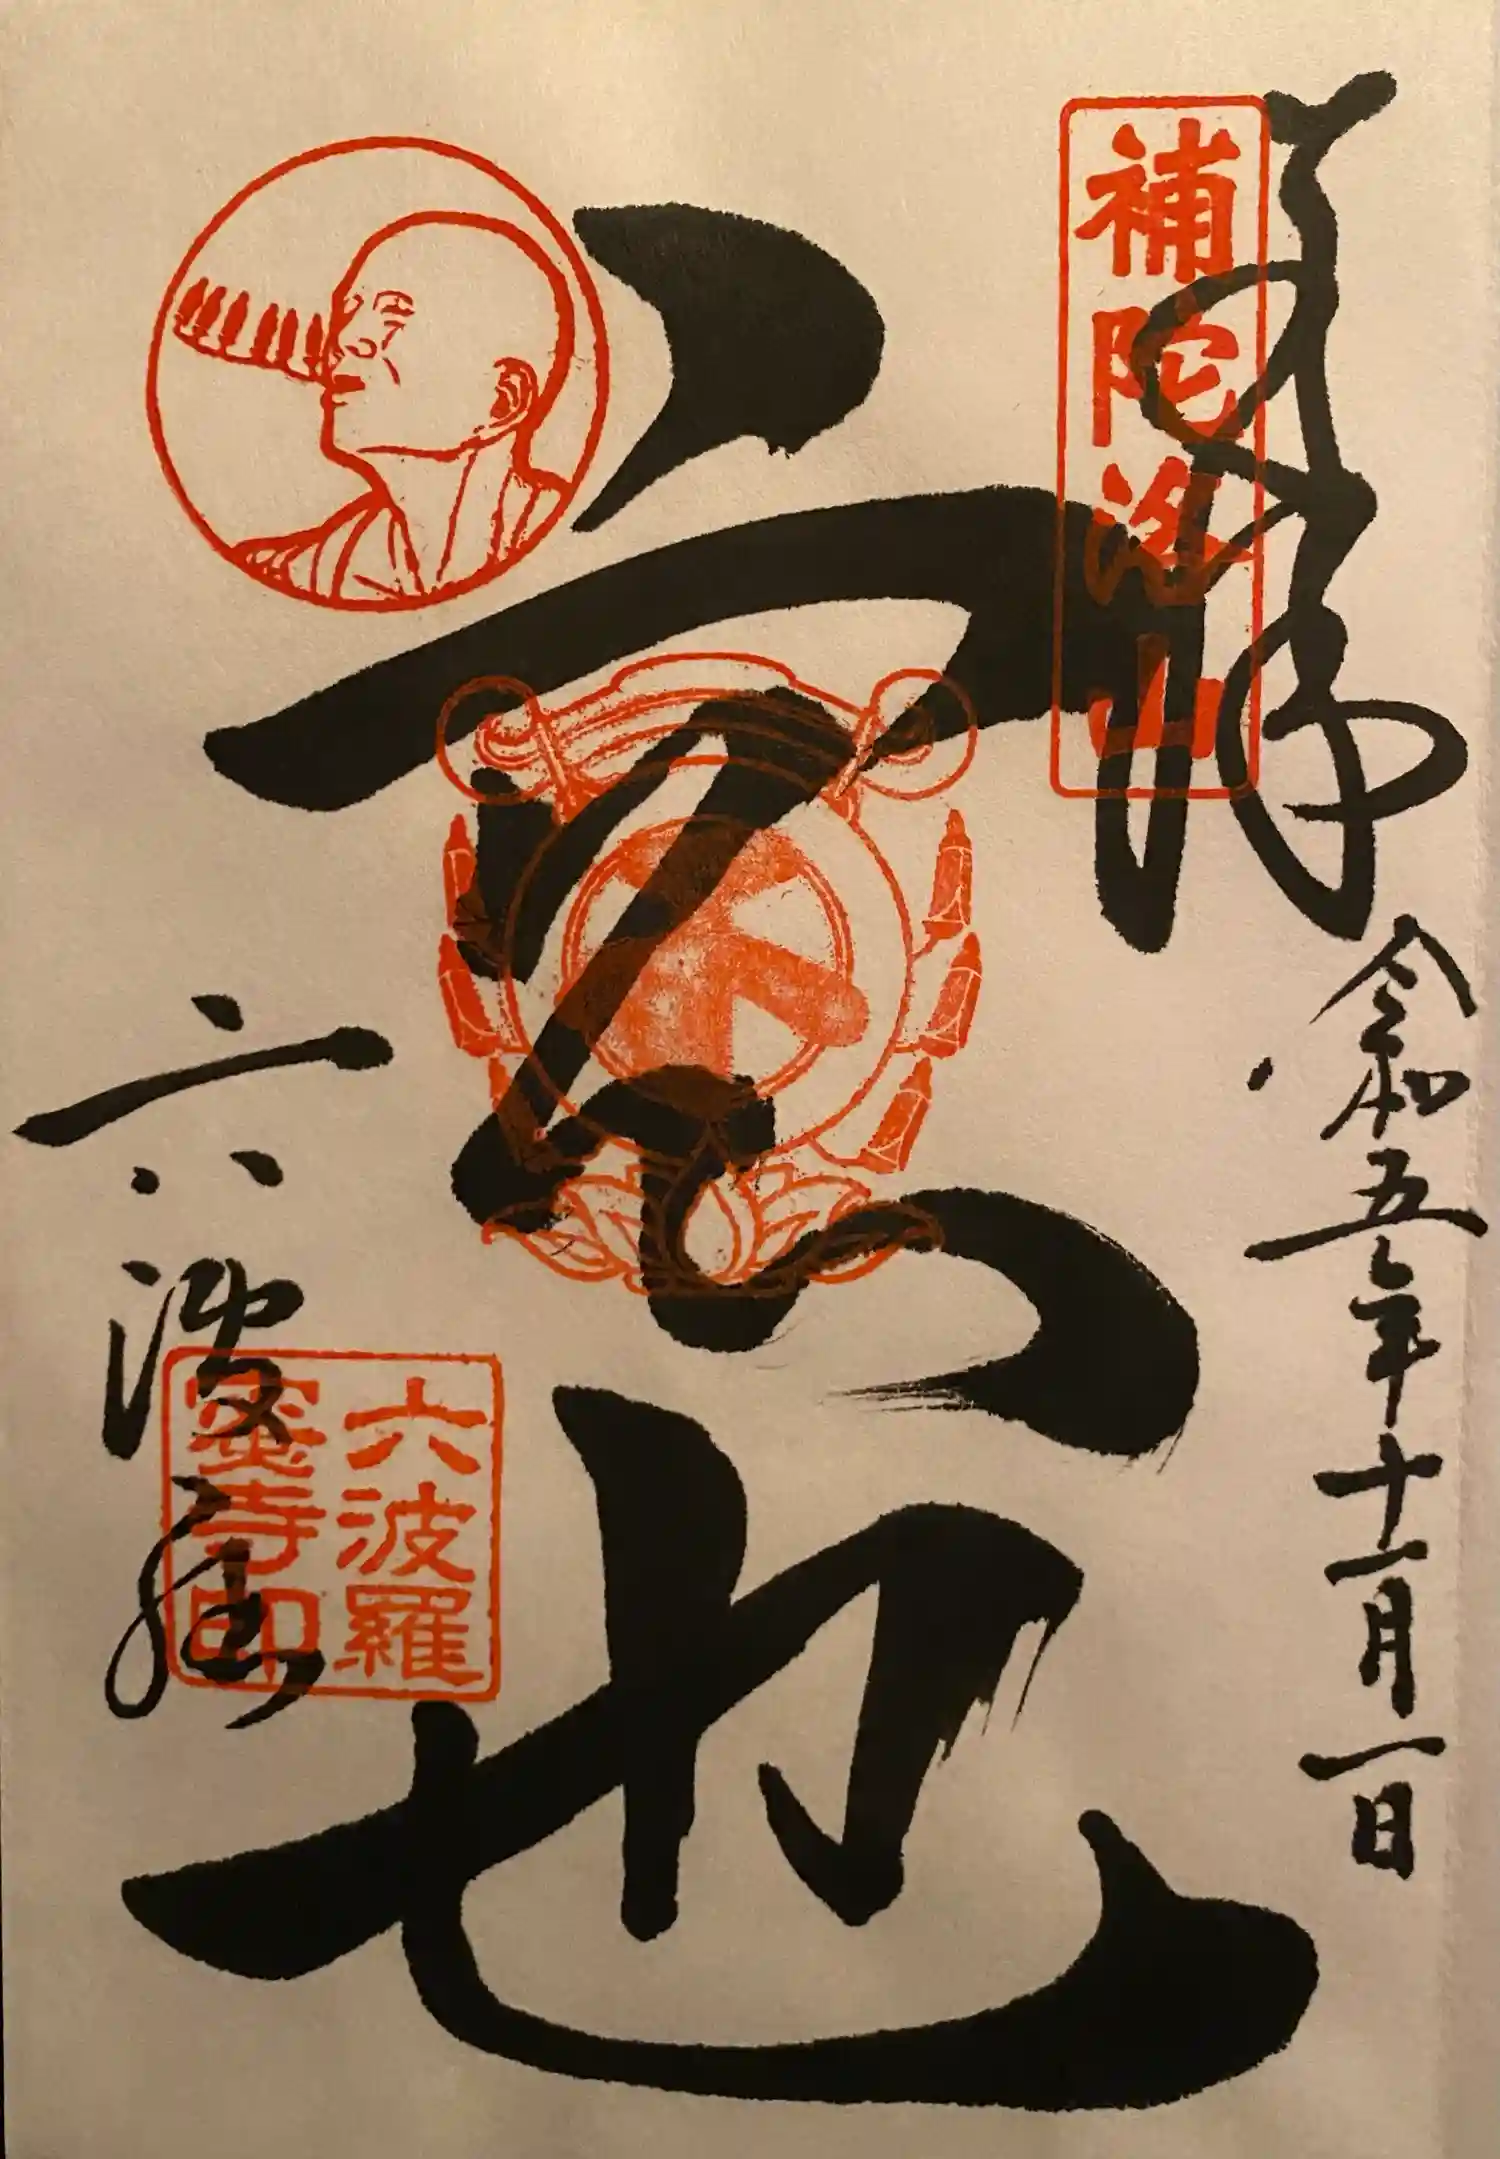 奉拝
補陀洛山
令和五年十一月一日
空也
六波羅
六波羅
蜜寺印